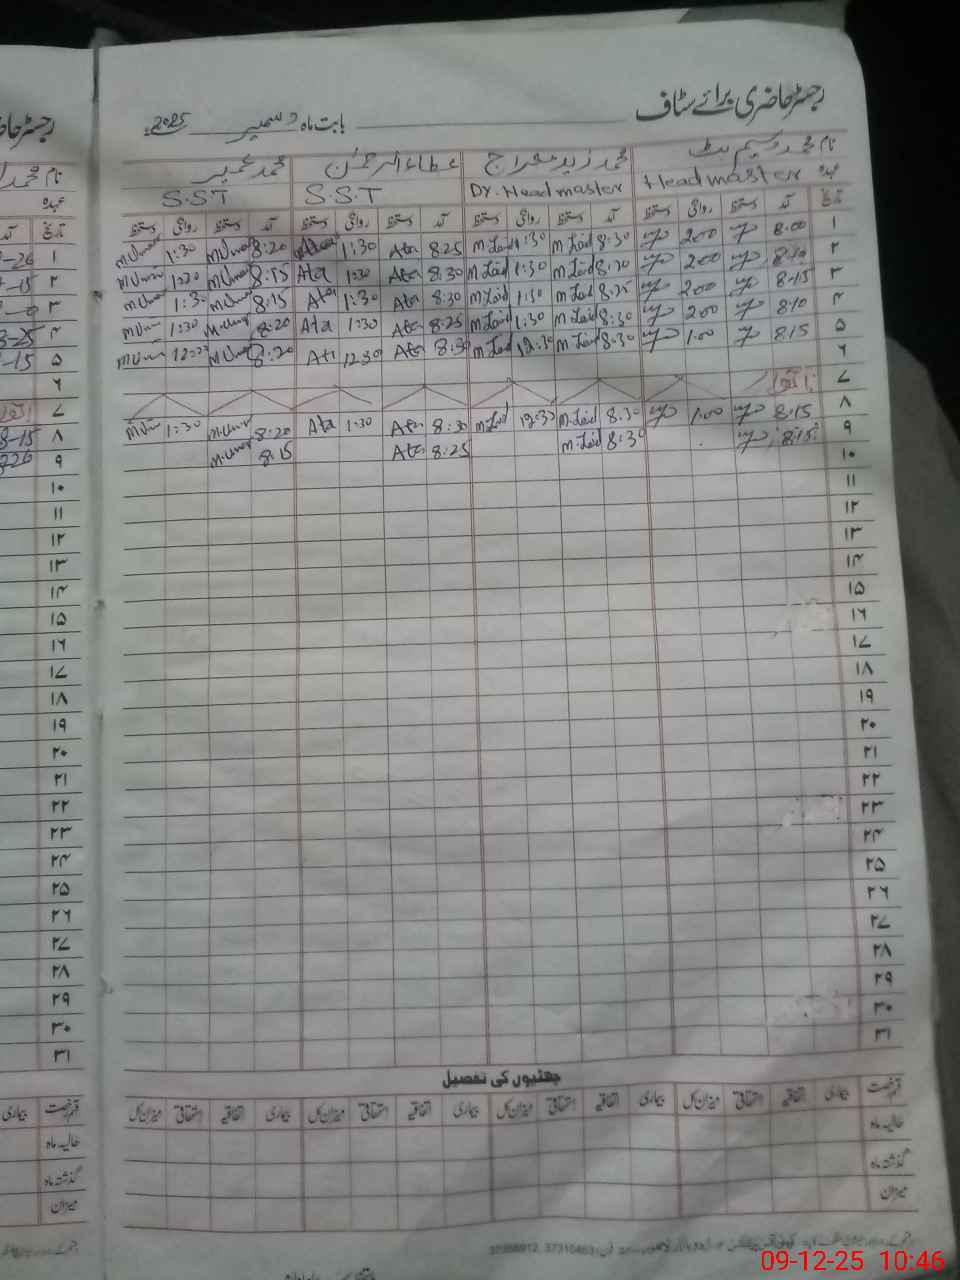 رجسٹر حاضری برائے سٹاف
بابت ماہ دسمبر 2025ء
نام محمد وسیم بٹ محمد زید معراج عطاء الرحمٰن محمد عمیر
عہدہ Headmaster Dy. Headmaster S.S.T S.S.T
تاریخ آمد دستخط روانگی دستخط آمد دستخط روانگی دستخط آمد دستخط روانگی دستخط آمد دستخط روانگی دستخط
۱ 8:00 2:00 8:30 M.Zaid 1:30 M.Zaid 8:25 Ata 1:30 8:20 M.Umar 1:30 M.Umar
۲ 8:10 2:00 8:30 M.Zaid 1:30 M.Zaid 8:30 Ata 1:30 Ata 8:15 M.Umar 1:30 M.Umar
۳ 8:15 2:00 8:25 M.Zaid 1:30 M.Zaid 8:30 Ata 1:30 Ata 8:15 M.Umar 1:30 M.Umar
۴ 8:10 2:00 8:30 M.Zaid 1:30 M.Zaid 8:25 Ata 1:30 Ata 8:20 M.Umar 1:30 M.Umar
۵ 8:15 1:00 8:30 M.Zaid 12:30 M.Zaid 8:30 Ata 12:30 Ata 8:20 M.Umar M.Umar
۶
۷ اتوار
۸ 8:15 1:00 8:30 M.Zaid 12:30 M.Zaid 8:30 Ata 1:30 Ata 8:20 M.Umar 1:30 M.Um
۹ 8:15 8:30 M.Zaid 8:25 Ata 8:15 M.Umar
۱۰
۱۱
۱۲
۱۳
۱۴
۱۵
۱۶
۱۷
۱۸
۱۹
۲۰
۲۱
۲۲
۲۳
۲۴
۲۵
۲۶
۲۷
۲۸
۲۹
۳۰
۳۱
چھٹیوں کی تفصیل
قسم رخصت بیماری اتفاقیہ استحقاقی میزان کل بیماری اتفاقیہ استحقاقی میزان کل بیماری اتفاقیہ استحقاقی میزان کل بیماری اتفاقیہ استحقاقی میزان کل
حالیہ ماہ
گذشتہ ماہ
میزان
09-12-25 10:46